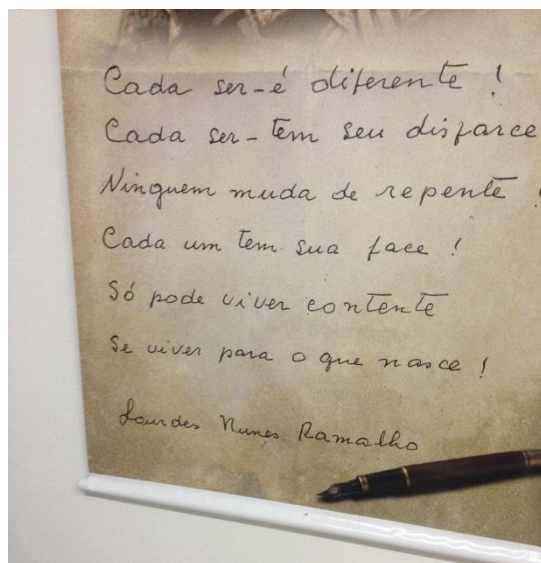 Cada ser-é diferente !
Cada ser-tem seu disfarce
Ninguem muda de repente !
Cada um tem sua face !
Só pode viver contente
Se viver para o que nasce !
Lourdes Nunes Ramalho